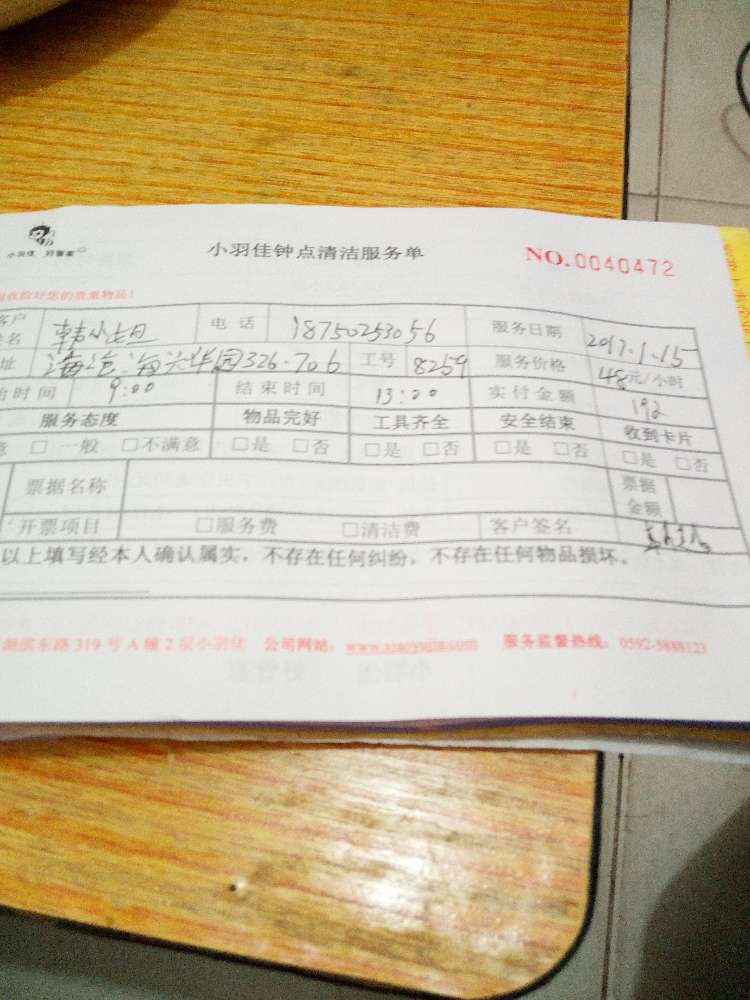 小羽佳 好管家
小羽佳钟点清洁服务单
NO.0040472
收拾好您的贵重物品!
客户
姓名 电话 18750253056 服务日期 2017.1.15
址 海沧 326-706 工号 8259 服务价格 48元/小时
始时间 9:00 结束时间 13:00 实付金额 192
服务态度 物品完好 工具齐全 安全结束 收到卡片
意 □一般 □不满意 □是 □否 □是 □否 □是 □否 □是 □否
票据名称 票据金额
开票项目 □服务费 □清洁费 客户签名
以上填写经本人确认属实,不存在任何纠纷,不存在任何物品损坏。
湖滨东路319号A幢2层小羽佳 公司网站: www.xiaoyujia.com 服务监督热线: 0592-5888123